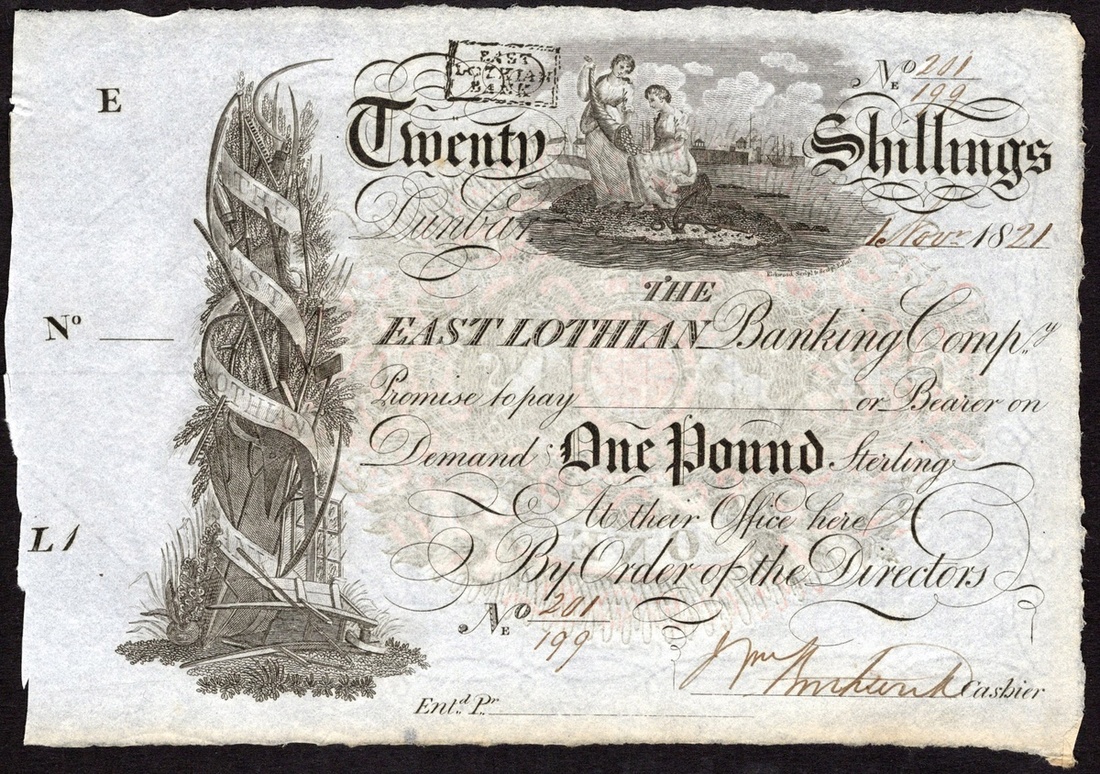 E
EAST
LOTHIAN
BANK
Nº 201
E 199
Twenty Shillings
Dunbar 1 Novr 1821
THE
EAST LOTHIAN Banking Compy
Promise to pay ____ or Bearer on
Demand One Pound Sterling
At their Office here
By Order of the Directors
Nº 201
E 199
Cashier
Entd Pr
Nº ____
L1
THE
EAST
LOTHIAN